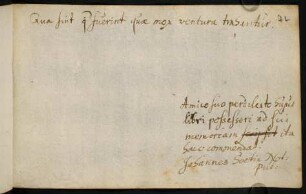 Quæ sint q fuerint quæ mox ventura trahentur. 
Amico suo perdilecto hujus
libri possessori ad sui
memoriam ita
hæc commendat
Johannes
Pict.